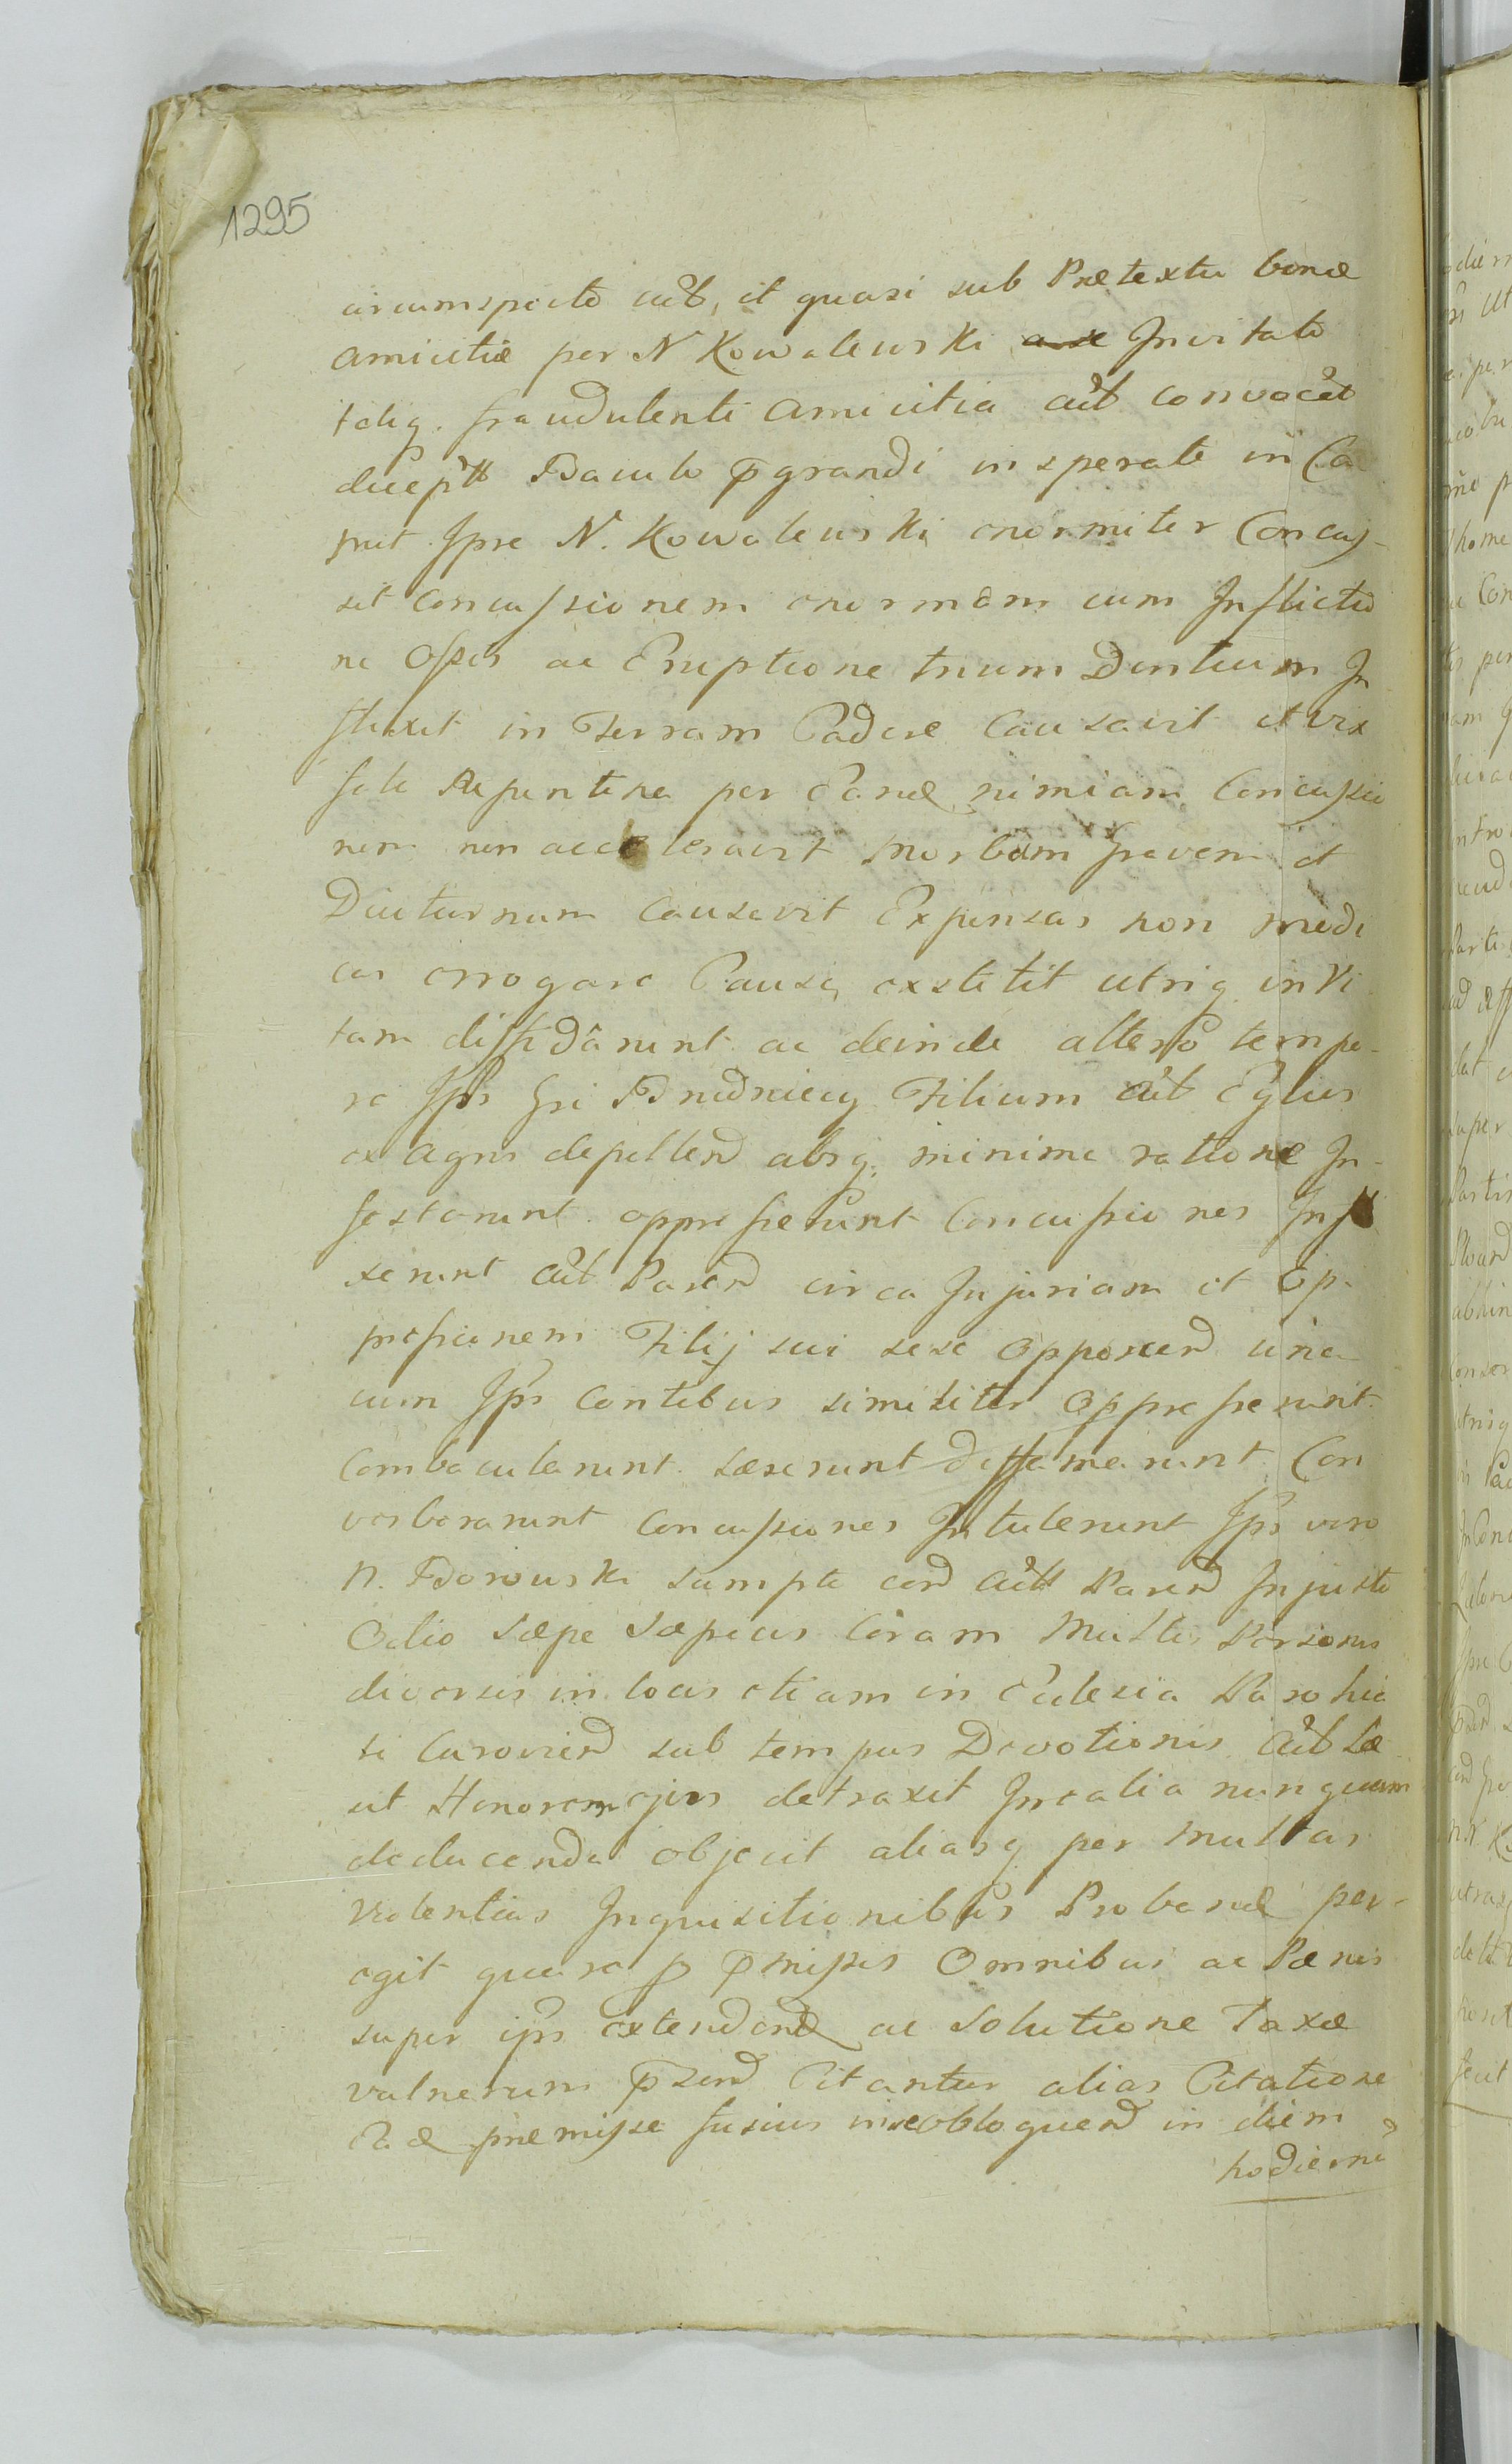 1295
circumspecte actb, et quasi sub Prætextu bonæ
amicitiæ per N Kowalewski Invitato
taliq. fraudulenti amicitia actb convocato
Baculo p̄grandi insperate in Ca
put Ipse N. Kowalewski enormiter Concus-
sit Concussionem enormem cum Inflictio
ne Ossis ac Eruptione trium Dentium In
flixit in Terram Cadere Causavit et vix
fata repentina per Eand nimiam Concussio
nem non acceleravit morbum gravem et
Diuturnum Causavit Expensas non modi
cas errogare Causa exstitit utriq in Vi
tam diffidârunt ac deinde altero tempo-
re Ips Gsi Filium actb Eqlus
ex agris depellend absq. minima ratione In-
festarunt oppresserunt Concussiones Infli
xerunt actb Parend circa Injuriam et Op-
pressionem Filij sui sese opponend una
cum Ips Contibus similiter Oppresserunt
Combacularunt Læserunt diffamarunt Con
verberarunt Concussiones Intulerunt Ips vero
N. Borowski sumpto erd actb Parend Injusto
Odio sæpe sæpius Coram Multis Personis
diversis in locis etiam in Eclesia Parohia
li sub tempus Devotionis actb Læ
sit Honorem ejus detraxit Irrealia nunquam
deducenda objecit aliasq per multas
violentias Inquisitionibus Proband per-
egit quare p p̄missis Omnibus ac Pænis
super ips extendend ac Solutione Taxæ
vulnerum p̄send Citantur alias Citatione
Ead præmissa fusius obloquend in diem
hodiernũ